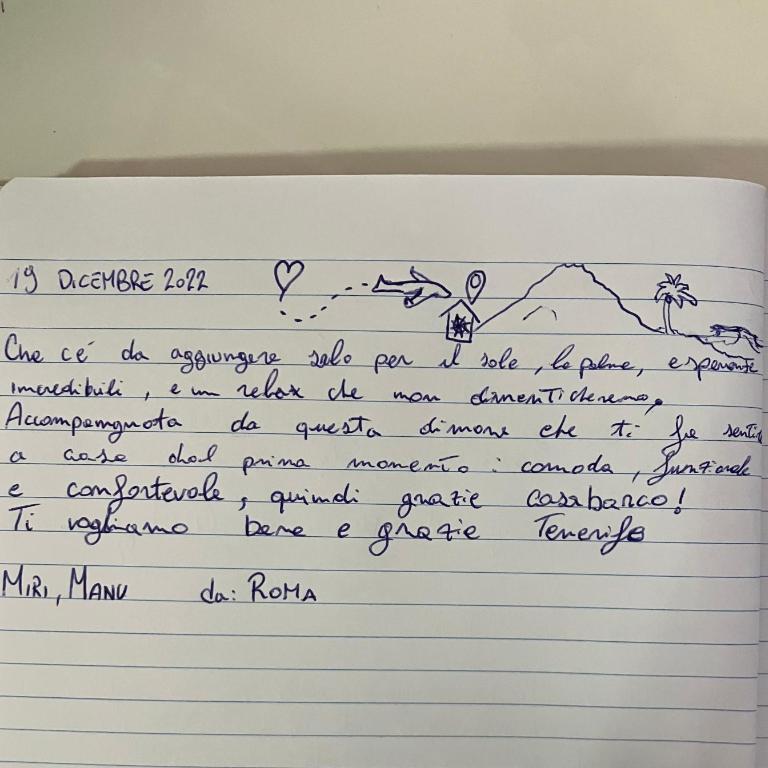 19 DICEMBRE 2022
Che c'é da aggiungere solo per il sole, le palme, esperienze
incredibili, e un relax che non dimenticheremo.
Accompagnata da questa dimora che ti fa sentire
a casa dal primo momento: comoda, funzionale
e confortevole, quindi grazie casabarco!
Ti vogliamo bene e grazie Tenerife
MIRI, MANU da: ROMA